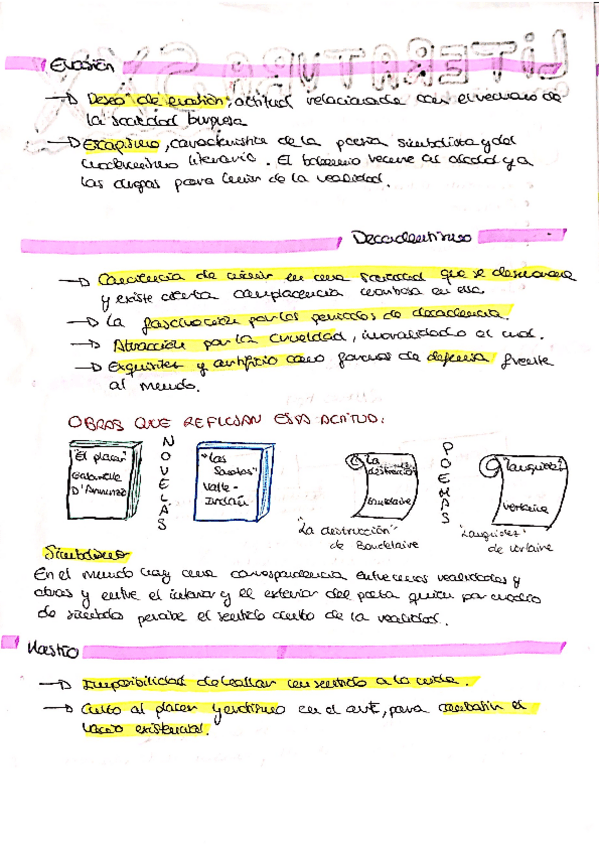 Evasión
→ Deseo de evasión, actitud relacionada con el rechazo de
la sociedad burguesa
→ Escapismo, característica de la poesía simbolista y del
modernismo literario. El bohemio recurre al alcohol y a
las drogas para huir de la realidad.
Decadentismo
→ Conciencia de vivir en una sociedad que se desmorona
y existe cierta complacencia morbosa en ello.
→ La fascinación por los periodos de decadencia.
→ Atracción por la crueldad, inmoralidad o el mal.
→ Exquisitez y artificio como formas de defensa frente
al mundo.
OBRAS QUE REFLEJAN ESTA ACTITUD:
NOVELAS
"El placer"
Gabrielle
D'Annunzio
"Las
Sonatas"
Valle-
Inclán
POEMAS
"La
destrucción"
Baudelaire
"La destrucción"
de Baudelaire
"Languidez"
Verlaine
"Languidez"
de Verlaine
Simbolismo
En el mundo hay una correspondencia entre unas realidades y
otras y entre el interior y el exterior del poeta quien por medio
de símbolos percibe el sentido oculto de la realidad.
Hastío
→ Imposibilidad de hallar un sentido a la vida.
→ Culto al placer y erotismo en el arte, para combatir el
vacío existencial.
LITERATURA S.XX